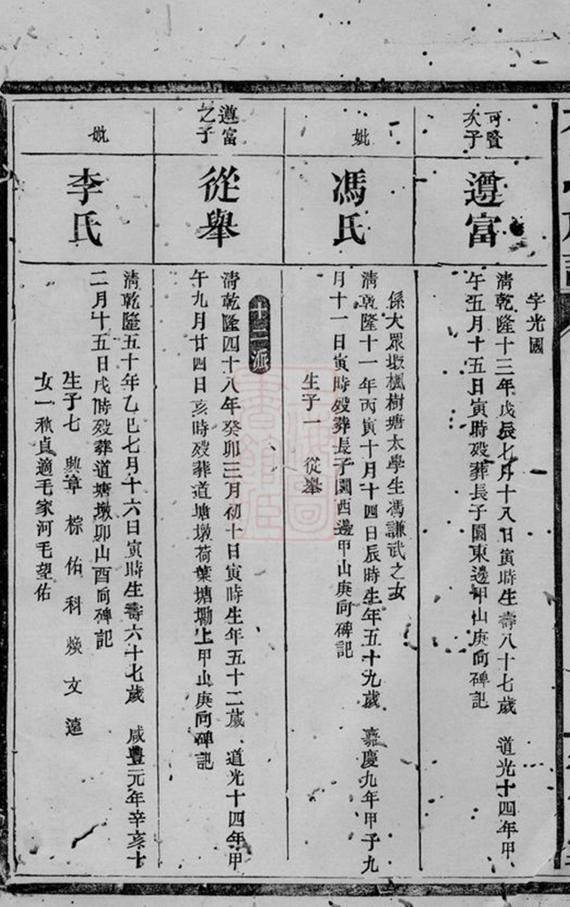 可賢
次子
遵富
字光國
清乾隆十三年戊辰七月十八日寅時生壽八十七歲 道光十四年甲
午五月十五日寅時歿葬長子園東邊甲山庚向碑記
妣
馮氏
係大眾堰楓樹塘太學生馮謙武之女
清乾隆十一年丙寅十月十四日辰時生年五十九歲 嘉慶九年甲子九
月十一日寅時歿葬長子園西邊甲山庚向碑記
生子一 從舉
遵富
之子
從舉
十二派
清乾隆四十八年癸卯三月初十日寅時生年五十二歲 道光十四年甲
午九月廿四日亥時歿葬道塘墩荷葉塘墈上甲山庚向碑記
妣
李氏
清乾隆五十年乙巳七月十六日寅時生壽六十七歲 咸豐元年辛亥十
二月十五日戌時歿葬道塘墩卯山酉向碑記
生子七 興章 棕 佑 科 煥 文 遠
女一秋貞適毛家河毛望佑